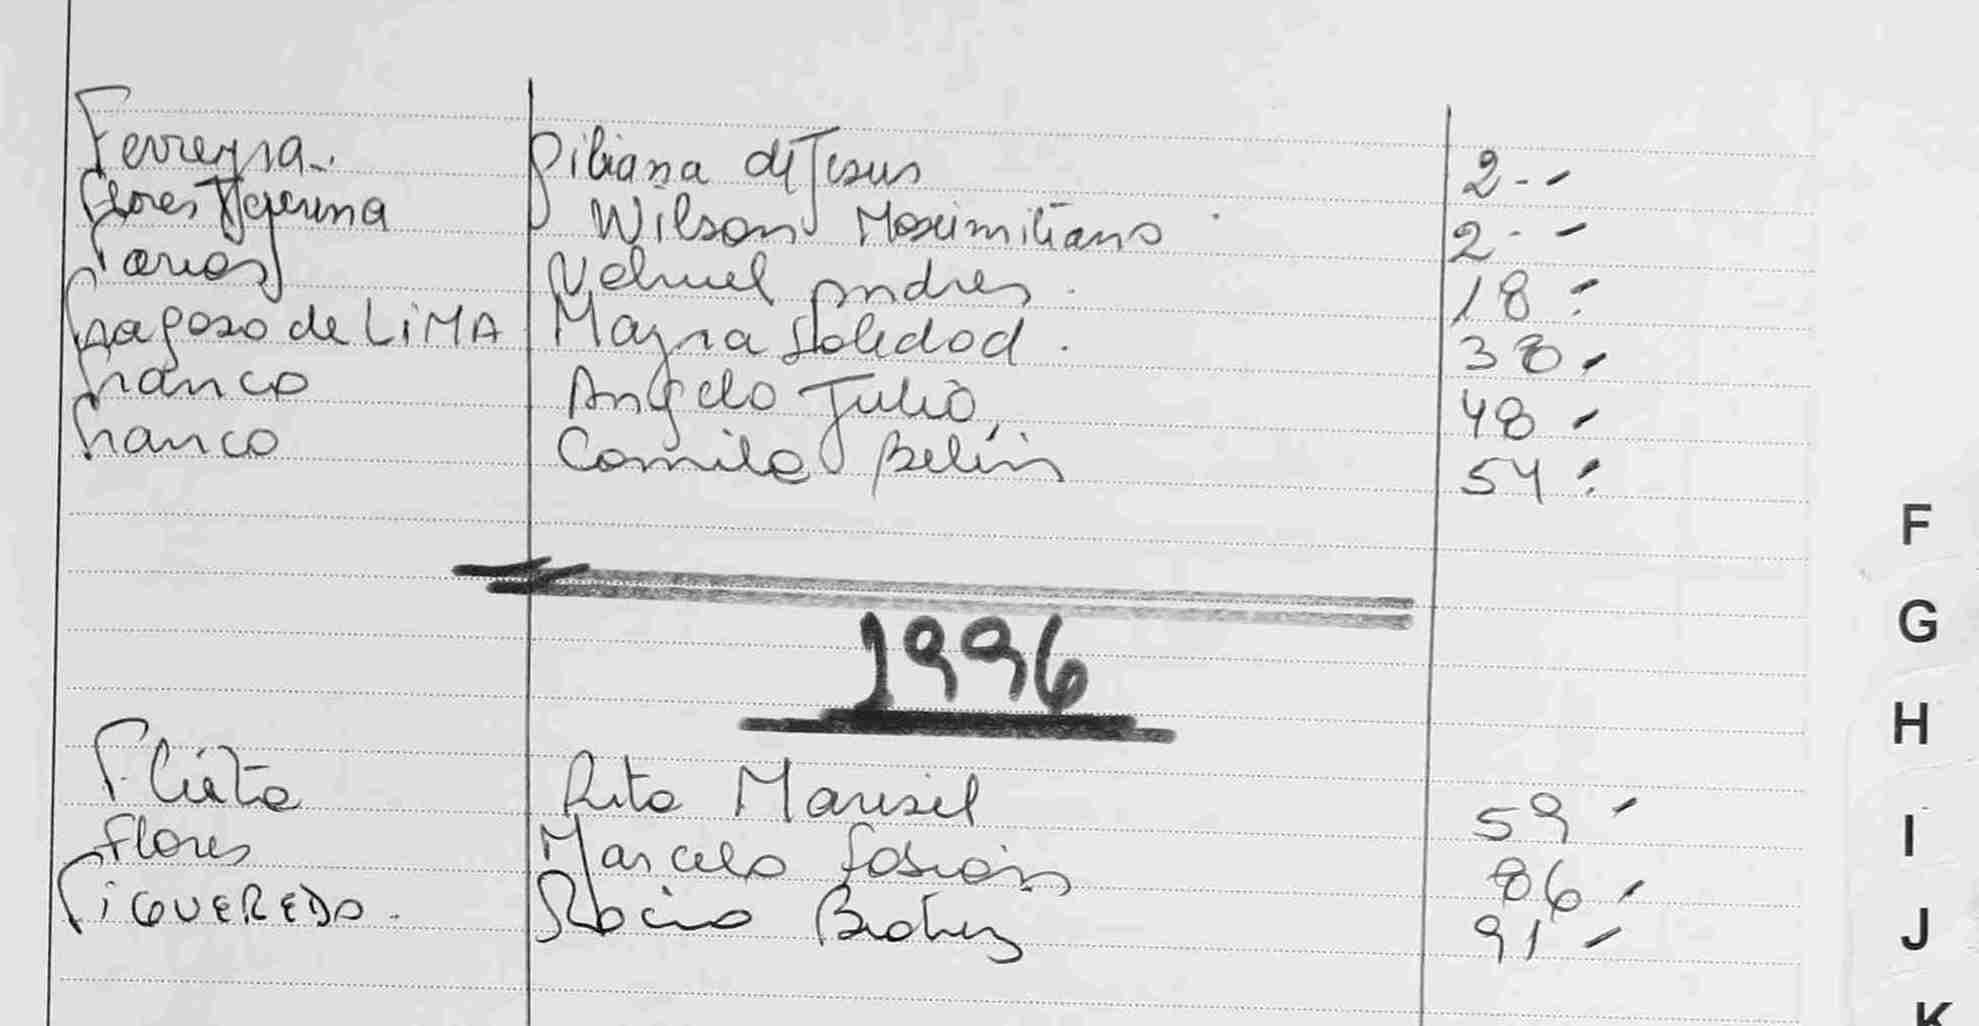 Ferreyra. Biliana de Jesus 2--
Flores Wilson Maximiliano 2--
Farias Nehuel Andres. 18
Fragoso de LiMA Mayra Soledad. 38
Franco Angelo Julio 48
Franco Camila Belén 54
F
G
1996
H
Rita Marisel 59
I
Flores Marcelo Fabián 86
FiGUEREDO. Rocio Beatriz 91
J
K